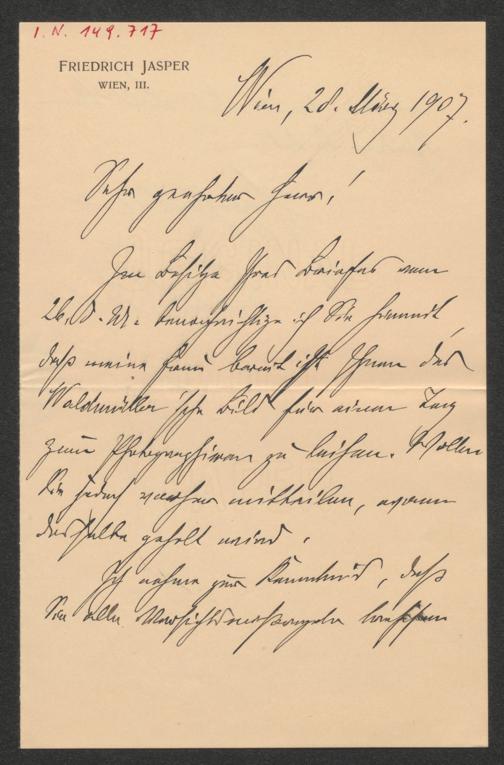 I. N. 149.717
FRIEDRICH JASPER
WIEN, III.
Wien, 28. März 1907.
Sehr geehrter Herr!
Im Besitze Ihres Briefes vom
26. d. M. benachrichtige ich Sie hiemit,
daß meine Frau bereit ist Ihnen das
Waldmüller'sche Bild für einen Tag
zum Photographieren zu leihen. Wollen
Sie jedoch vorher mitteilen, wann
dasselbe geholt wird.
Ich nehme zur Kenntnis, daß
Sie alle Vorsichtsmaßregeln treffen